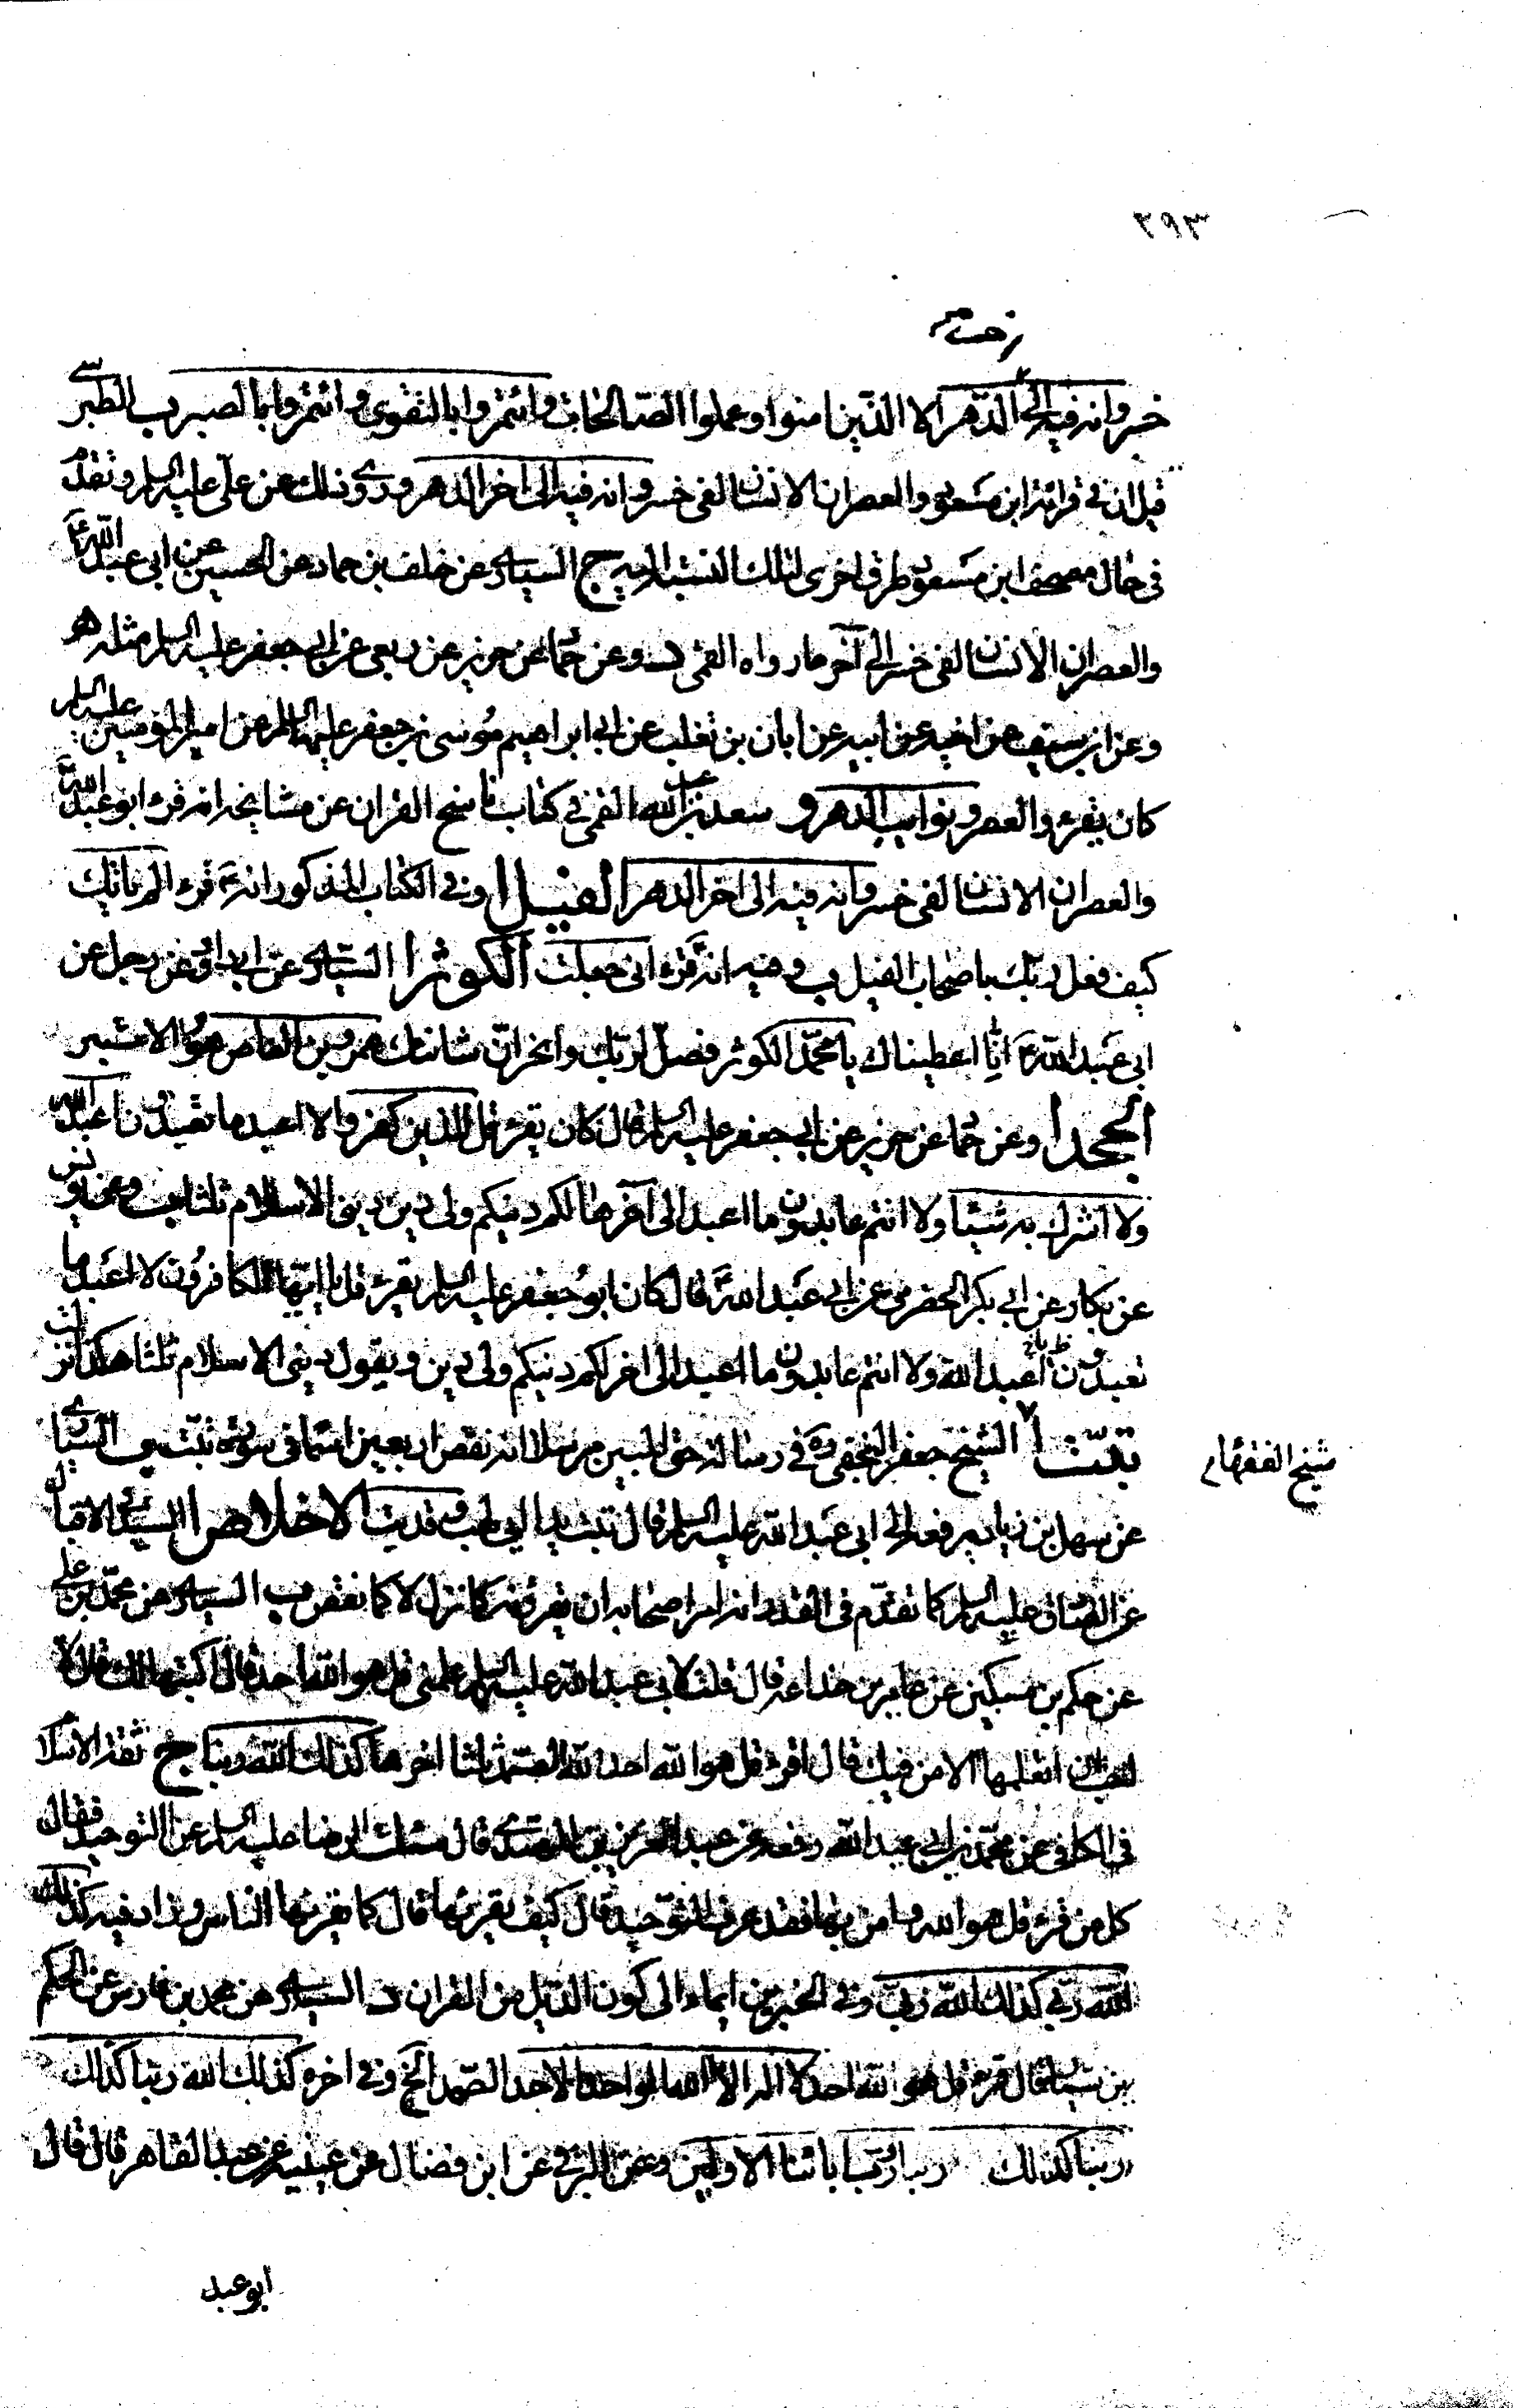 ٢٩٣
خسر وانه فيه الى الدهر الا الذين امنوا وعملوا الصالحات وائتمروا بالتقوى وائتمروا بالصبر ب الطبرسي
قيل ان في قرائة ابن مسعود والعصر ان الانسان لفي خسر وانه فيه الى اخر الدهر وروى ذلك عن علي عليه السلم وتقدم
في حال مصحف ابن مسعود طرق اخرى لتلك النسبة اليه ج السياري عن خلف بن حماد عن الحسين عن ابي عبد الله ع
والعصر ان الانسان لفي خسر الى آخر ما رواه القمي د وعن حماد عن حريز عن ربعي عن ابي جعفر عليه السلم مثله ه
وعن ابن سيف عن اخيه عن ابيه عن ابان بن تغلب عن ابي ابراهيم موسى بن جعفر عليهما السلم عن امير المؤمنين عليه السلم
كان يقرء والعصر ونوايب الدهر و سعد بن عبد الله القمي في كتاب ناسخ القران عن مشايخه انه قرء ابو عبد الله ع
والعصر ان الانسان لفي خسر وانه فيه الى اخر الدهر الفيل ا وفي الكتاب المذكور انه ع قرء الم ياتيك
كيف فعل ربك باصحاب الفيل ب وفيه انه ع قرء اني جعلت الكوثر ا السياري عن ابي داود عن رجل عن
ابي عبد الله ع انا اعطيناك يا محمد الكوثر فصل لربك وانحر ان شانئك عمرو بن العاص هو الابتر
الجحد ا وعن حماد عن حريز عن ابي جعفر عليه السلم قال كان يقرء قل للذين كفروا لا اعبد ما تعبدون اعبد الله
ولا اشرك به شيئا ولا انتم عابدون ما اعبد الى آخرها لكم دينكم ولي دين ديني الاسلام ثلثا ب وعن يونس
عن بكار عن ابي بكر الحضرمي عن ابي عبد الله ع قال كان ابو جعفر عليه السلم يقرء قل يا ايها الكافرون لا اعبد ما
تعبدون اعبد الله ولا انتم عابدون ما اعبد الى اخر لكم دينكم ولي دين ويقول ديني الاسلام ثلثا هكذا نزلت
تبت ا الشيخ جعفر النجفي ره في رسالة حق المبين مرسلا انه نقص اربعين اسما في سورة تبت ب السياري
شيخ الفقهاء
عن سهل بن زياد يرفعه الى ابي عبد الله عليه السلم قال تبت يدا ابي لهب وقد تب الاخلاص ا السيد في الاقبال
عن الصادق عليه السلم كما تقدم في القدر انه امر اصحابه ان يقرؤنه كما نزل لا كما نقص ب السياري عن محمد بن علي
عن حكم بن مسكين عن عامر بن خداعة قال قلت لابي عبد الله عليه السلم علمني قل هو الله احد قال اكتبها لك قال لا
احب ان اتعلمها الا من فيك قال اقرء قل هو الله احد الله الصمد ثلثا اخرها كذلك الله ربنا ج ثقة الاسلام
في الكافي عن محمد بن ابي عبد الله رفعه عن عبد العزيز بن المهتدي قال سئلت الرضا عليه السلم عن التوحيد فقال
كل من قرء قل هو الله وامن بها فقد عرف التوحيد قال كيف يقرئها قال كما يقرئها الناس وزاد فيه كذلك
الله ربي كذلك الله ربي وفي الخبرين ايماء الى كون الذيل من القران د السياري عن محمد بن فارس عن الحكم
بن سيار قال قرء قل هو الله احد لا اله الا الله الواحد الاحد الصمد الخ وفي اخره كذلك الله ربنا كذلك
ربنا كذلك ربنا ورب ابائنا الاولين وعن البرقي عن ابن فضال عن عيينة عن عبد القاهر قال قال
ابو عبد